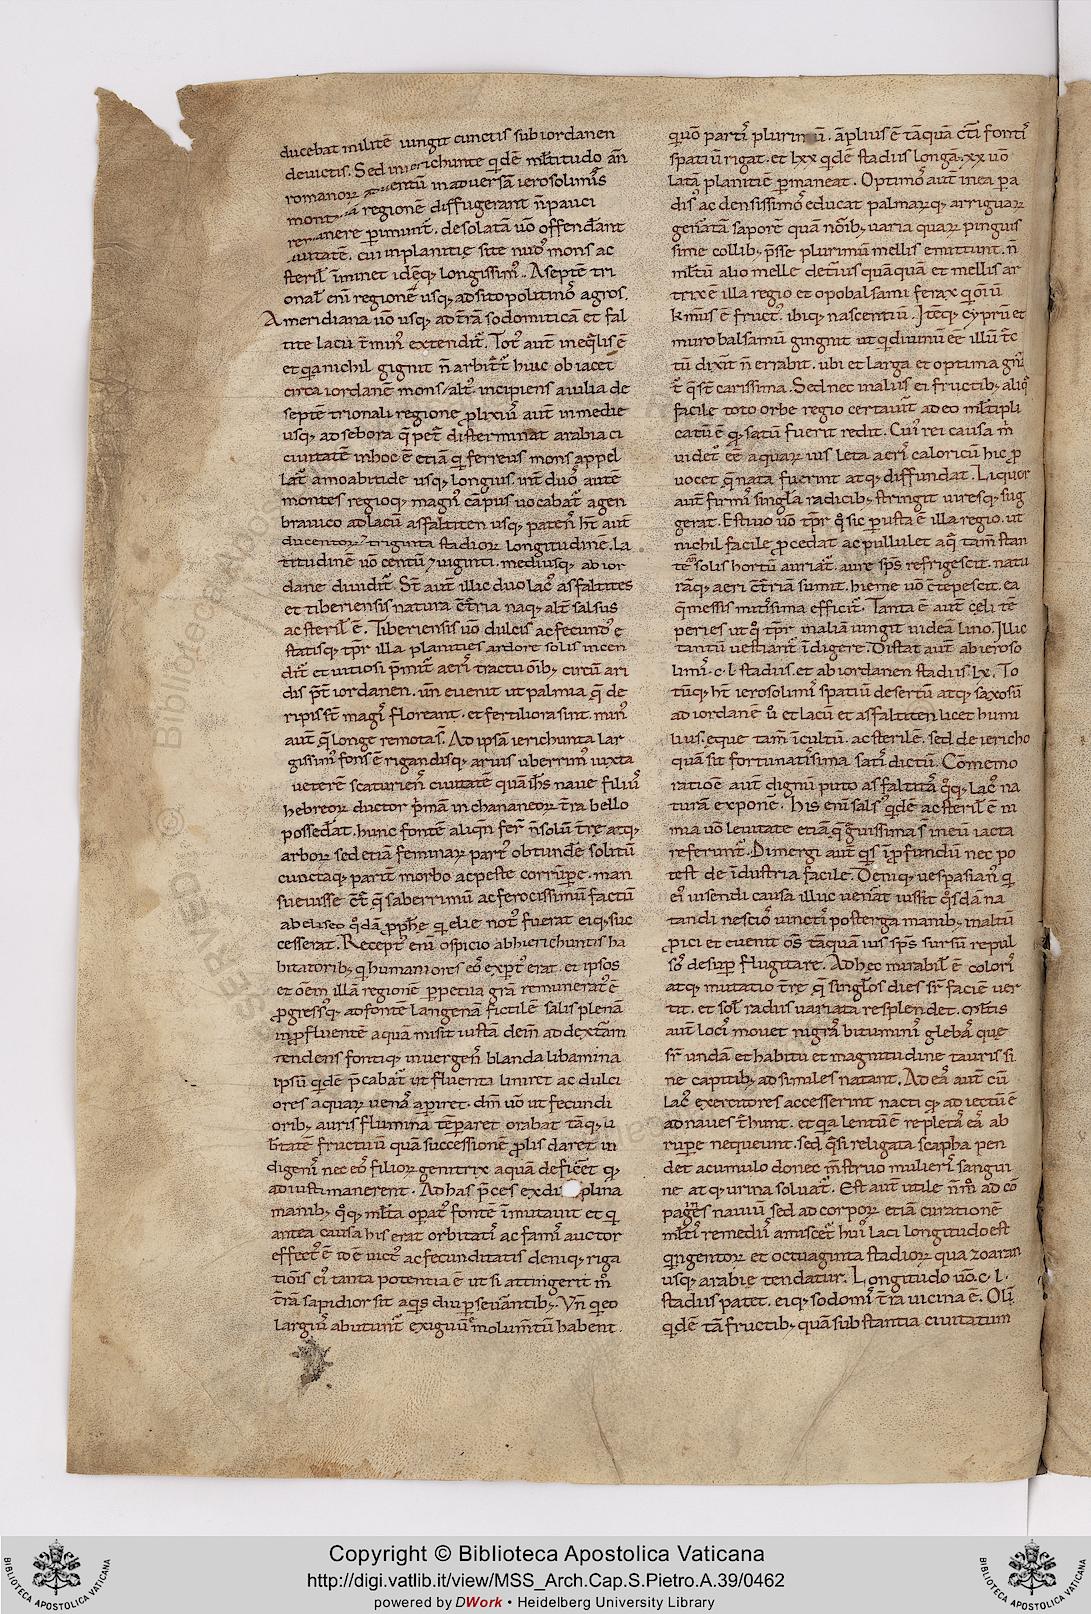 ducebat militē iungit cunctis sub iordanen
deuictis. Sed in ierichunte q̇dē ml̄titudo an̄
romanoꝝ aduentū in aduersā ierosolimis
montanā regionē diffugerant n̄ pauci
remanere pimunt̄. desolatā uō offendunt
ciuitatē. cui in planitie site nud' mons ac
steril' īminet idēq; longissim'. A septē tri
onal' eni regionē usq; ad sitopolitinoꝝ agros.
A meridiana uō usq; ad tr̄a sodomiticā et fal
tite lacu t̄min' extendit̄. Tot' aut̄ ineq̄lis ē
et q̇a nichil gignit n̄ arbit̄t̄ huic obiacet
circa iordanē mons / alt' incipiens a iulia de
septē trionali regione plixiu' aut̄ in medie
usq; ad sebora q̄ pet̄ disterminat arabia ci
ciuitatē in hoc ē etiā qi ferreus mons appel
lat̄ a moabitide usq; longius. int̄ duo' autē
montes regioq; magn' cāpus uocabat̄ agen
brauico ad lacū asfaltiten usq; paten' ht̄ aut̄
ducentoꝝ ⁊ triginta stadioꝝ longitudinē. la
titudinē uō centū ⁊ uiginti. mediusq; ab ior
dane diuidit̄. St̄ aut̄ illic duo lac' asfaltites
et tiberiensis natura c̄t̄ria naq; alt' salsus
ac steril' ē. Tiberiensis uō dulcis ac fecund' e
statisq; tpr̄ illa planities ardore solis incen
dit̄ et uitiosi p̄mit̄ aeri' tractu oīb; circū ari
dis p̄t̄ iordanen. un̄ euenit ut palmia q̄ de
ripis st̄ magi' floreant. et fertiliora sint. min'
aut̄ q̄ longe remotas. Ad ipsā ierichunta lar
gissim' fons ē rigandisq; aruis uberrim' iuxta
ueterē scaturien' ciuitatē quā ih̄s naue filiu'
hebreoꝝ ductor p̄mā in chananeoꝝ t̄ra bello
possed̄at. hunc fontē aliqn̄ fer̄ n̄ solū t̄re atq;
arboꝝ sed etiā feminaꝝ part' obtunde solitū
cunctaq; paritū morbo ac peste corrūpe. man
sueuisse c̄t̄ q̄ saberrimū ac ferocissimū factū
ab eliseo q̇dā pph̄e qi elie not' fuerat eiq; suc
cesserat. Recept' eni ospicio ab hierichuntis ha
bitatorib; qi humaniores eo' expt' erat. et ipsos
et oēm illā regionē perpetua gr̄a remunerat' ē
progressq; ad fontē langenā fictilē salis plenā
in profluentē aquā misit iustā deim̄ ad dext̄am
tendens fontiq; in uergen' blanda libamina
ipsū q̇dē p̄cabat̄ ut fluenta liniret ac dulci
ores aquaꝝ uena' apiret. dm̄ uō ut fecundi
orib; auris flumina tēparet orabat tāq; u
b̄tatē fructuū quā successionē plis daret in
digeni' nec eo' filioꝝ genitrix aquā deficēt q;
ad iusti manerent. Ad has p̄ces ex disciplina
manib; q̇q; ml̄ta opat' fontē īmutauit et q̄
antea causa his erat orbitati' ac fami' auctor
effect' ē idē uict' ac fecunditatis deniq; riga
tiōis ei' tanta potentia ē ut si attingerit m̊
t̄rā sapidior sit aqis diu pseuātib;. Vn̄ q̇ eo
largiu' abutunt̄ exiguū emolumt̄ū habent.
quō parti' plurimū. āplius ē tāquā c̄ti fonti'
spatiū rigat. et lxx q̇dē stadiis longā. xx uō
latā planitiē p̄maneat. Optimo' aut̄ in ea pa
dis' ac densissimo' educat palmaꝝq; arriguaꝝ
gen̄atā saporē quā noīb; uaria quaꝝ pinguis
sime collib; p̄sse plurimū mellis emittunt. n̄
ml̄tū alio melle det̄ius quāquā et mellis ar
trix ē illa regio et opobalsami ferax q̇ oīū
k̄mus ē fruct' ibiq; nascentiū. Itēq; cyprū et
muro balsamū gingnit ut q̇ diuinū eē illū t̄c
tū dixit̄ n̄ errabit. ubi et larga et optima gn̄i'
t̄ q̄ st̄ carissima. Sed nec in aliis ei fructib; aliq̄
facile toto orbe regio certauit̄ adeo ml̄tipli
catū ē q; satū fuerit redit. Cui' rei causa m̄
uidet̄ eē aquaꝝ uis leta aeri' caloricū hic p
uocet q̄ nata fuerint atq; diffundat. Liquor
aut̄ firmi' singla radicib; stringit uiresq; sug
gerat. Estiuo uō tpr̄ q̇ sic p̄usta ē illa regio. ut
nichil facile p̄cedat ac pullulet aq̄ tam̄ stan
te solis hortū auriat̄. aure sp̄s refrigescit. natu
rāq; aeri c̄t̄riā sumit. hieme uō c̄tepescit. ea
q̄ messis mit̄sima efficit̄. Tanta ē aut̄ celi tē
peries ut q̊ tpr̄ in aliā iungit iudeā lino. Illic
tantū uestiant̄ īdiger̄t. Distat aut̄ ab ieroso
limi'. c. l stadiis. et ab iordanen stadiis. lx. To
tūq; ht̄ ierosolimi' spatiū desertū atq; saxosū
ad iordanē u̇ et lacū et asfaltiten licet humi
lius. eque tam̄ īcultū. ac sterilē. sed de iericho
quā sit fortunatīsima sati' dictū. Cōmemo
ratioē aut̄ dignū puto asfaltitā q̇q; lac' na
turā expone. his eni sals' q̇dē ac steril' ē ni
mia uō leuitate etiā q̄ gr̄uissima s̄ in eū iacta
referunt̄. Dimergi aut̄ q̇s ī pfundiū nec po
test de industria facile. Deniq; uespasian' qi
ei' uisendi causa illuc uenāt iussit q̇s dā na
tandi nescio' uincti' posterga manib; in altū
proici et euenit oēs tāquā uis sp̄s sursū repul
so' desup flugitare. Ad hec mirabil' ē colori'
atq; mutatio t̄re q̄ singlos dies sr̄ faciē uer
tit. et sol' radius uariata resplendet. ml̄tis
aut̄ loci' mouet nigra' bitumini' gleba' que
sr̄ undā et habitu et magnitudine tauris si
ne capitib; ad similes natant. Ad ea' aut̄ cū
lac' exercitores accesserint nacti q; ad iectū ē
ad naues t̄hunt. et q̇a lentū ē repleta' ea' ab
rupe nequeunt. sed q̄si religata scapha pen
det acumulo donec m̄struo mulieri' sangui
ne atq; urina soluat̄. Est aut̄ utile n̄ m̊ ad cō
pagines nauiū sed ad corpoꝝ etiā curatione
ml̄ti' remediu' amiscet̄ hui' laci longitudo est
qingentoꝝ et octuaginta stadioꝝ qua zoaran
usq; arabie tendatur. Longitudo uō. c. l.
stadiis patet. eiq; sodomi' t̄ra uicina ē. Olī
q̇dē tā fructib; quā substantia ciuitatum
Copyright © Biblioteca Apostolica Vaticana
http://digi.vatlib.it/view/MSS_Arch.Cap.S.Pietro.A.39/0462
powered by DWork • Heidelberg University Library